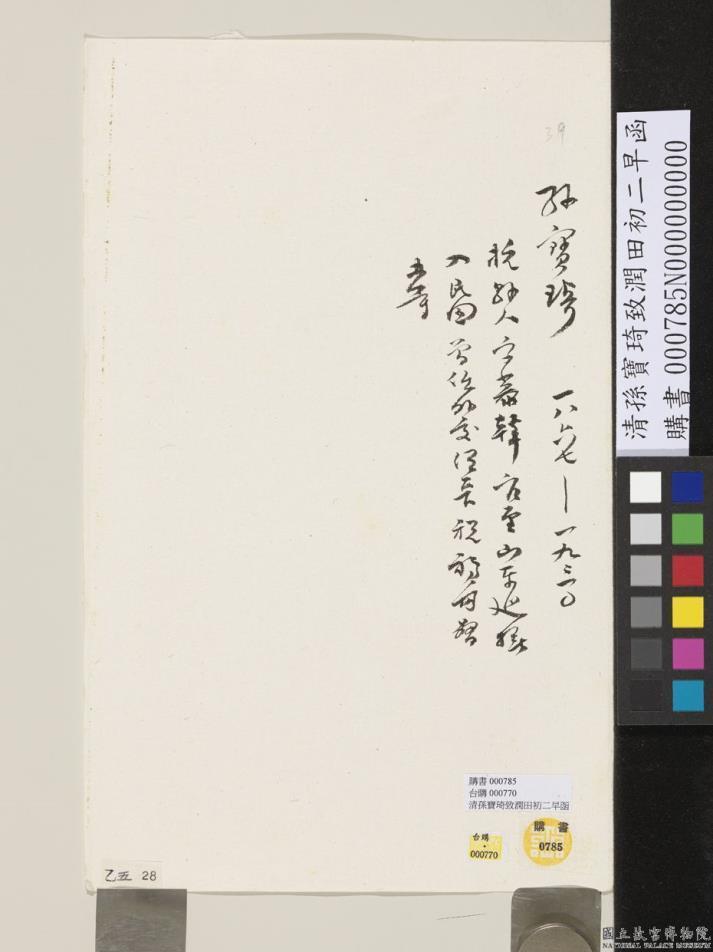 39
孫寶琦 一八六七—一九三一。
杭縣人 字慕韓 官至山東巡撫
入民國 曾任外交總長 稅務督辦
等
清孫寶琦致潤田初二早函
購書 000785N000000000
購書 000785
台購 000770
清孫寶琦致潤田初二早函
購書
0785
台購
000770
乙五 28
國立故宮博物院
NATIONAL PALACE MUSEUM